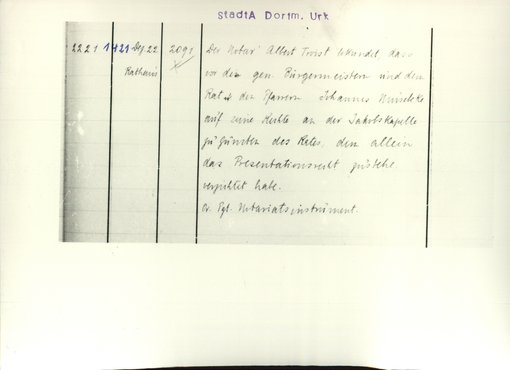 StadtA Dortm. Urk
2221 1421 Dez 22 2091 Der Notar Albert Troist bekundet, dass
Rathaus vor den gen. Bürgermeistern und dem
Rat der Pfarrer Johannes
auf seine Rechte an der Jakobskapelle
zu Gunsten des Rates, dem allein
das Presentationsrecht zustehe
verzichtet habe.
Or. Pgt. Notariatsinstrument.